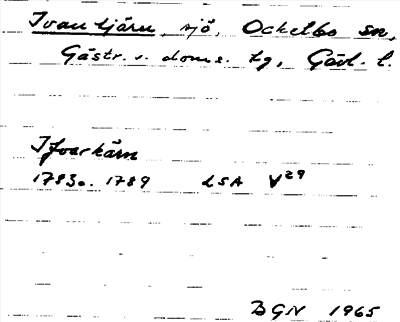 Ivantjärn, sjö, Ockelbo sn,
Gästr. v. doms. tg, Gävl. l.
Ifvarkärn
1783 o. 1789 LSA V29
BGN 1965